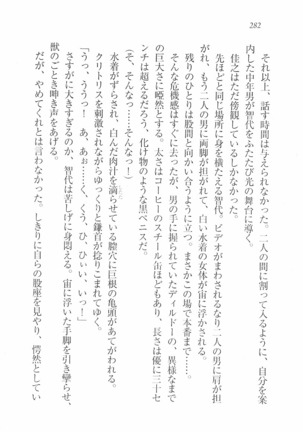 282
それ以上、話す時間は与えられなかった。二人の間に割って入るように、自分を案
内した中年男が智代をふたたび光の舞台に導く。
佳之はただ傍観しているしかなかった。
先ほどと同じ場所に身を横たえる智代。ビデオがまわされるなり二人の男に肩が担
がれ、もう二人の男に両脚が担がれて、白い水着の女体が宙に浮かされる。
残りのひとりは股間と向かい合うように立つ。まさかこの場で本番まで……。
そんな危機感はすぐに去ったが、男の手に握られていたディルドーの、異様なまで
の巨大さに唖然とする。太さはコーヒーのスチール缶ほどもあり、長さは優に三十セ
ンチは超えるだろう、化け物のような黒ペニスだ。
（そ、そんなっ……そんなっ！）
水着がずらされ、白んだ肉汁を滴らせている膣穴に巨根の亀頭があてがわれる。
クリトリスを刺激されながらゆっくりと鎌首が捻りこまれてゆく。
「うっ、ううっ！　あ、あぉ……く、くう、ひ、ひいい、いいっ！」
さすがに大きすぎるのか、智代は苦しげに身悶える。宙に浮いた手脚を引き攣らせ、
獣のごとき呻き声をあげる。
だが、やめてくれとは言わなかった。しきりに自らの股座を見やり、愕然としてい